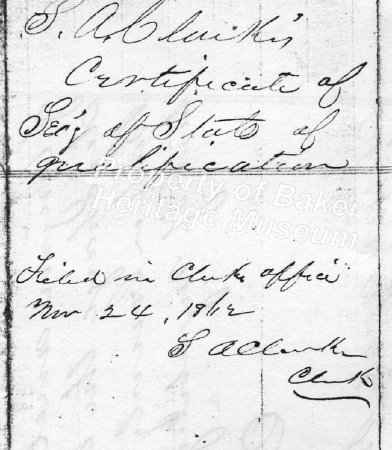 S. A. Clark's
Certificate of
Sec'y of State of
qualification
Property of Baker
Heritage Museum
Filed in Clerks office
Nov 24, 1862
S A Clarke
Clerk